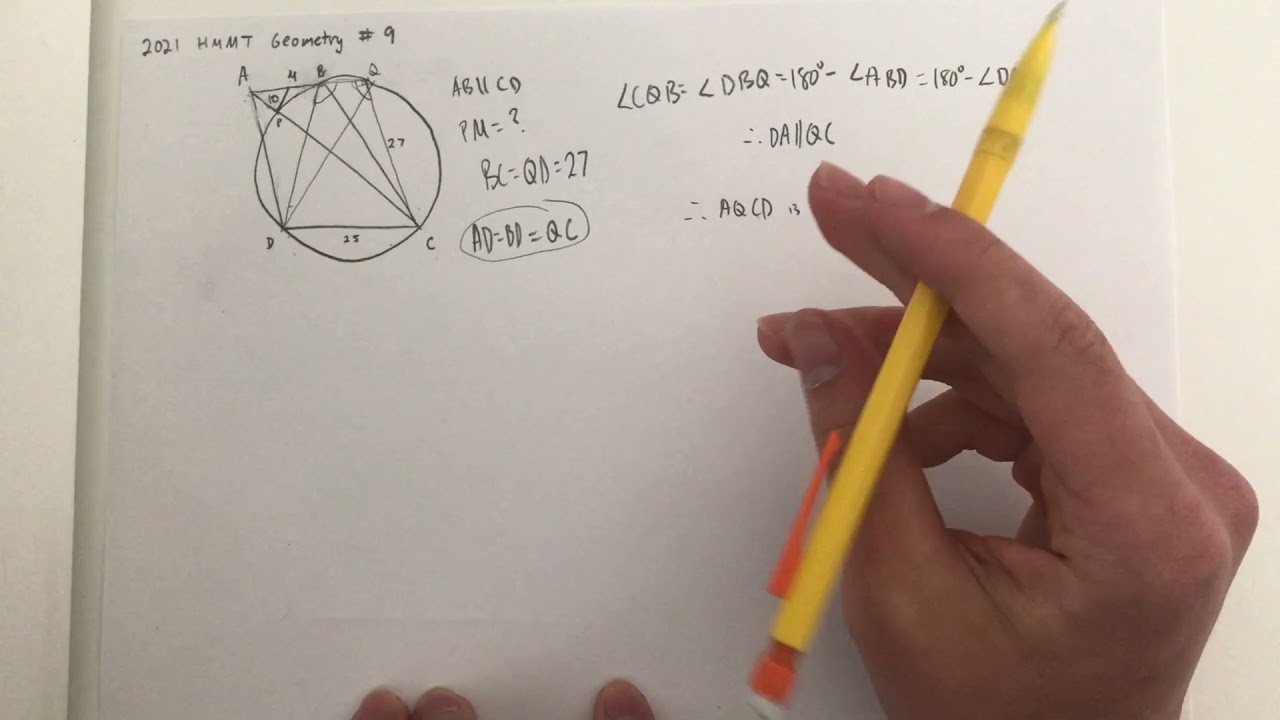 2021 HMMT Geometry # 9
A M B Q
10
P
27
D 25 C
AB∥CD
PM=?
BC=QD=27
AD=BD=QC
∠CQB=∠DBQ=180°-∠ABD=180°-∠D
∴DA∥QC
∴ AQCD is